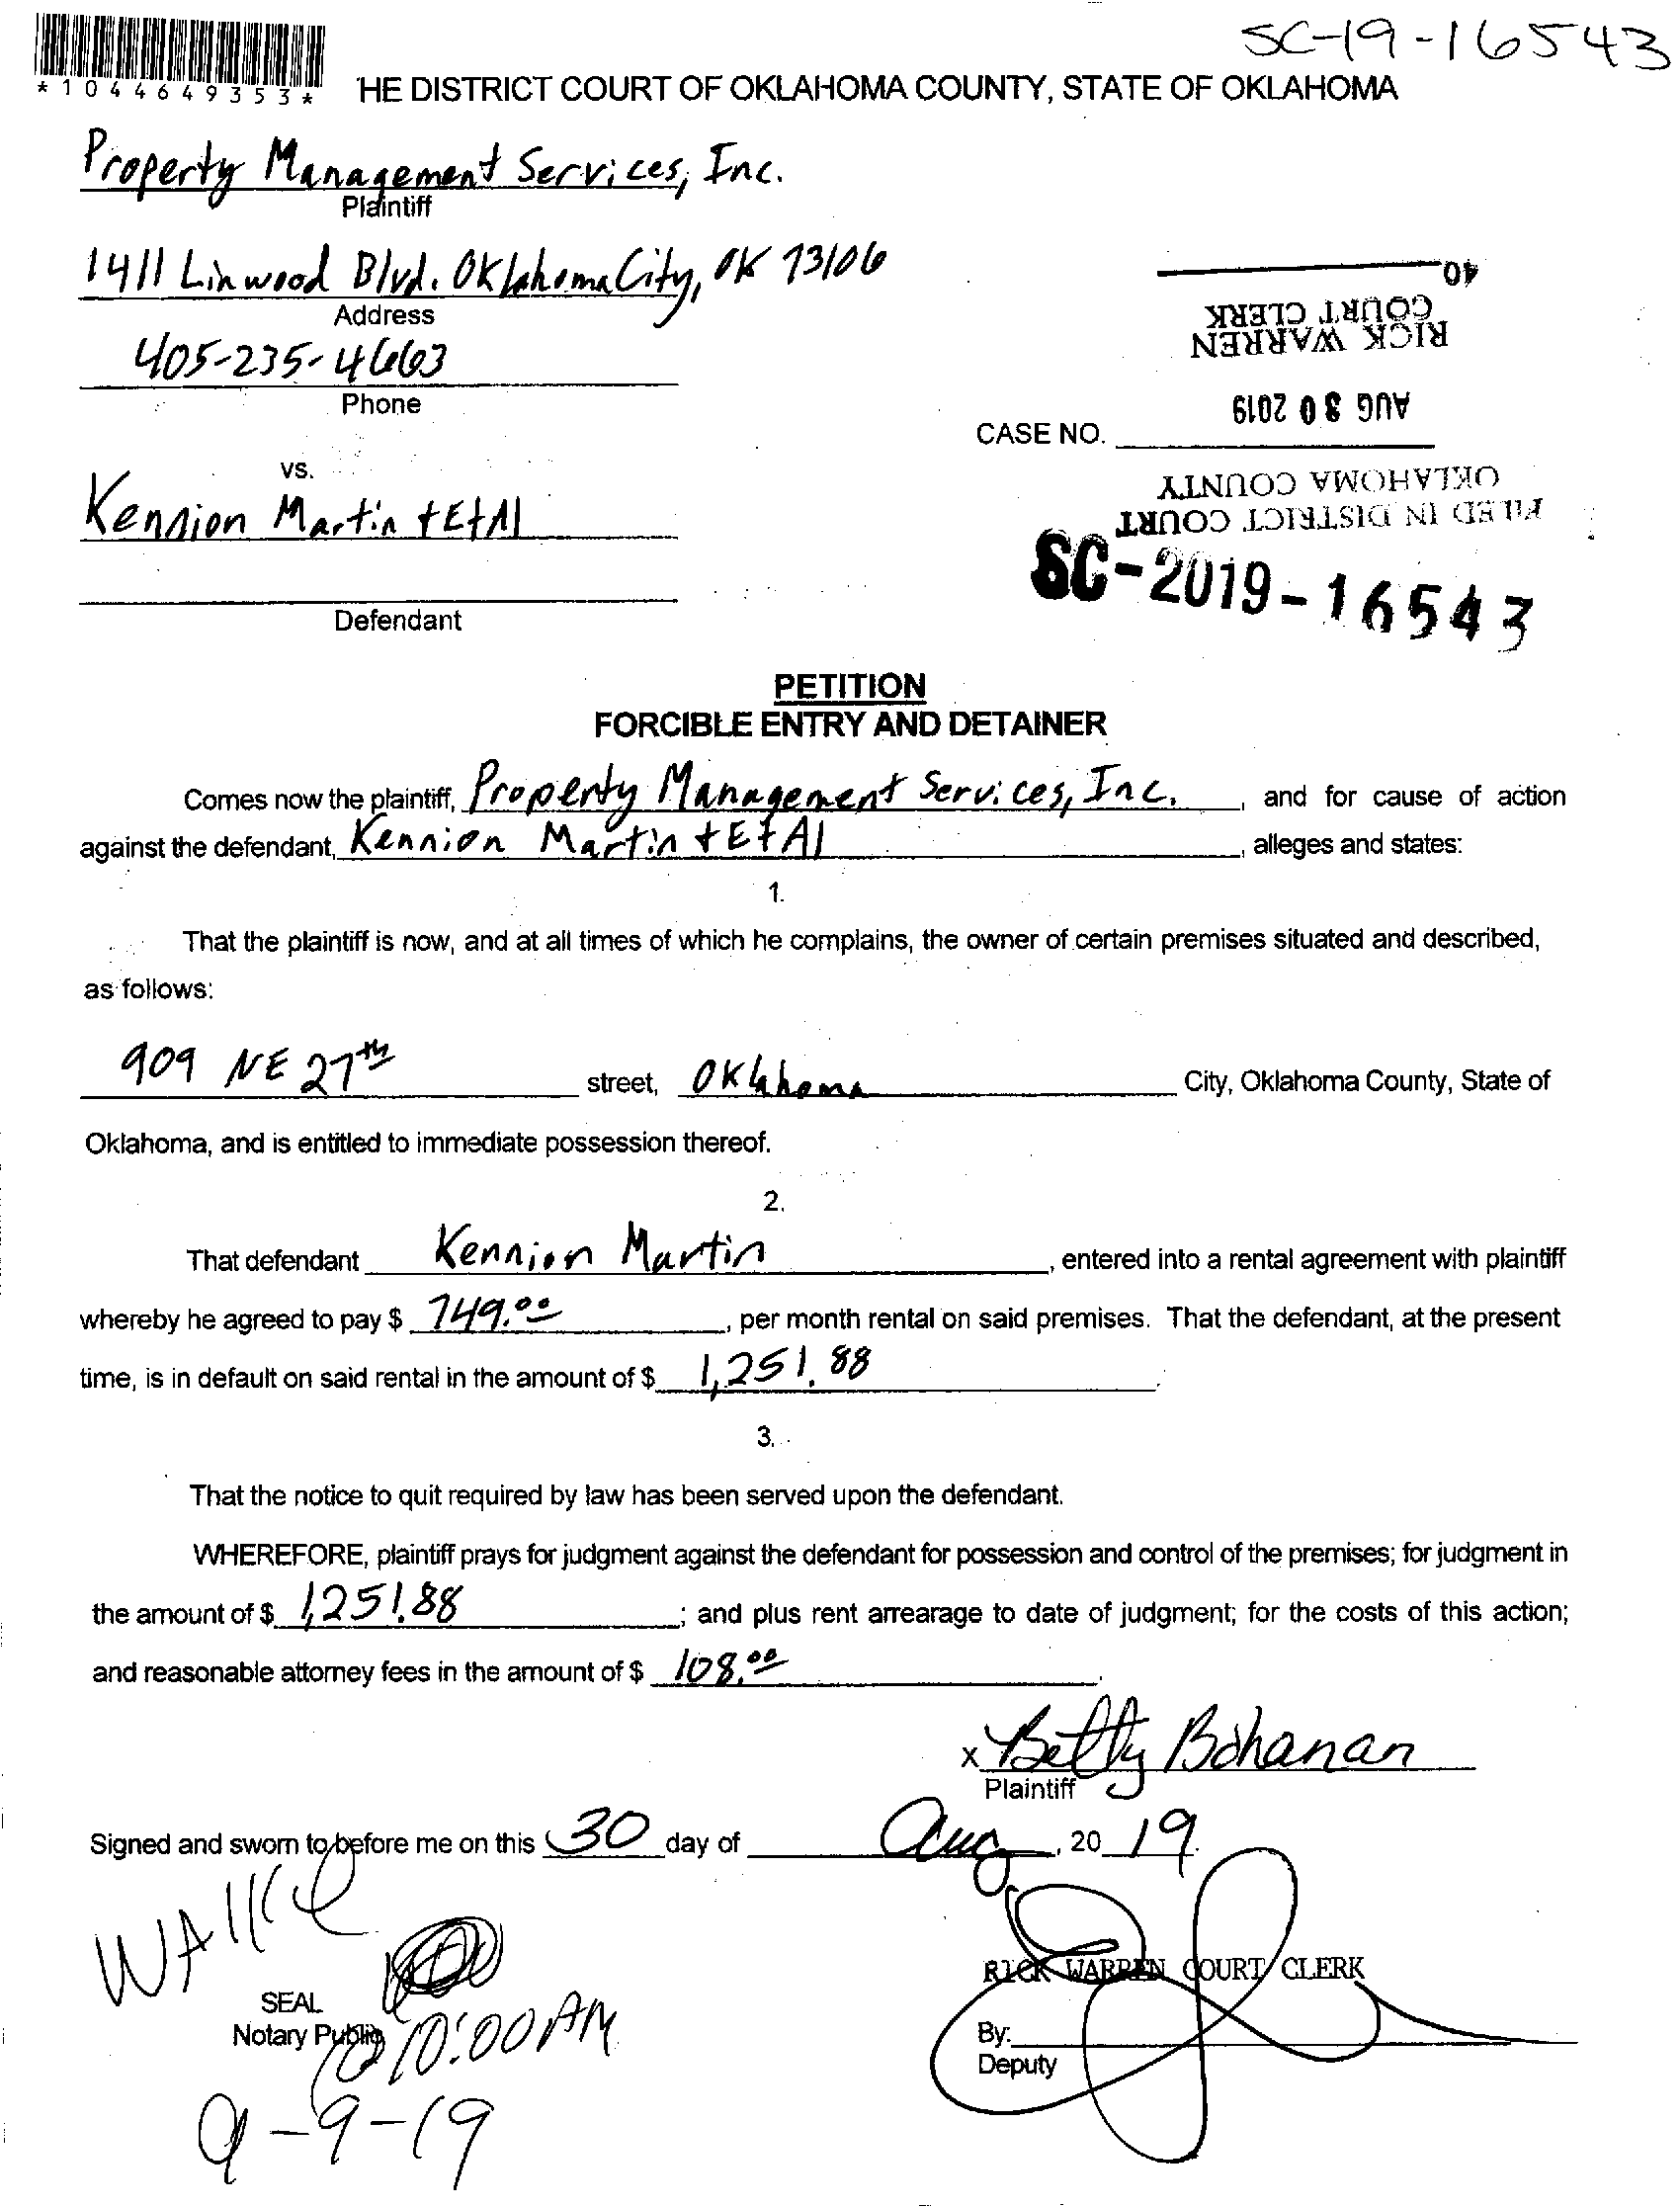 SC-19-16543
*1044649353*
HE DISTRICT COURT OF OKLAHOMA COUNTY, STATE OF OKLAHOMA
Property Management Services, Inc.
Plaintiff
1411 Linwood Blvd. Oklahoma City, OK 73106
Address
405-235-4663
Phone
40
COURT CLERK
RICK WARREN
AUG 30 2019
CASE NO.
OKLAHOMA COUNTY
FILED IN DISTRICT COURT
vs.
Kennion Martin + Et Al
SC-2019-16543
Defendant
PETITION
FORCIBLE ENTRY AND DETAINER
Comes now the plaintiff, Property Management Services, Inc. , and for cause of action
against the defendant, Kennion Martin + Et Al , alleges and states:
1.
That the plaintiff is now, and at all times of which he complains, the owner of certain premises situated and described,
as follows:
909 NE 27th street, Oklahoma City, Oklahoma County, State of
Oklahoma, and is entitled to immediate possession thereof.
2.
That defendant Kennion Martin , entered into a rental agreement with plaintiff
whereby he agreed to pay $ 749.00 , per month rental on said premises. That the defendant, at the present
time, is in default on said rental in the amount of $ 1,251.88 .
3.
That the notice to quit required by law has been served upon the defendant.
WHEREFORE, plaintiff prays for judgment against the defendant for possession and control of the premises; for judgment in
the amount of $ 1,251.88 ; and plus rent arrearage to date of judgment; for the costs of this action;
and reasonable attorney fees in the amount of $ 108.00 .
x Betty Bohanan
Plaintiff
Signed and sworn to before me on this 30 day of Aug , 20 19.
RICK WARREN COURT CLERK
SEAL
Notary Public @ 10:00 AM
By:
Deputy
9-9-19